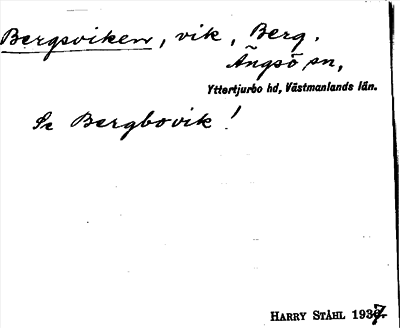 Bergsviken, vik, Berg.
Ängsö sn,
Yttertjurbo hd, Västmanlands län.
Se Bergbovik!
HARRY STÅHL 1937